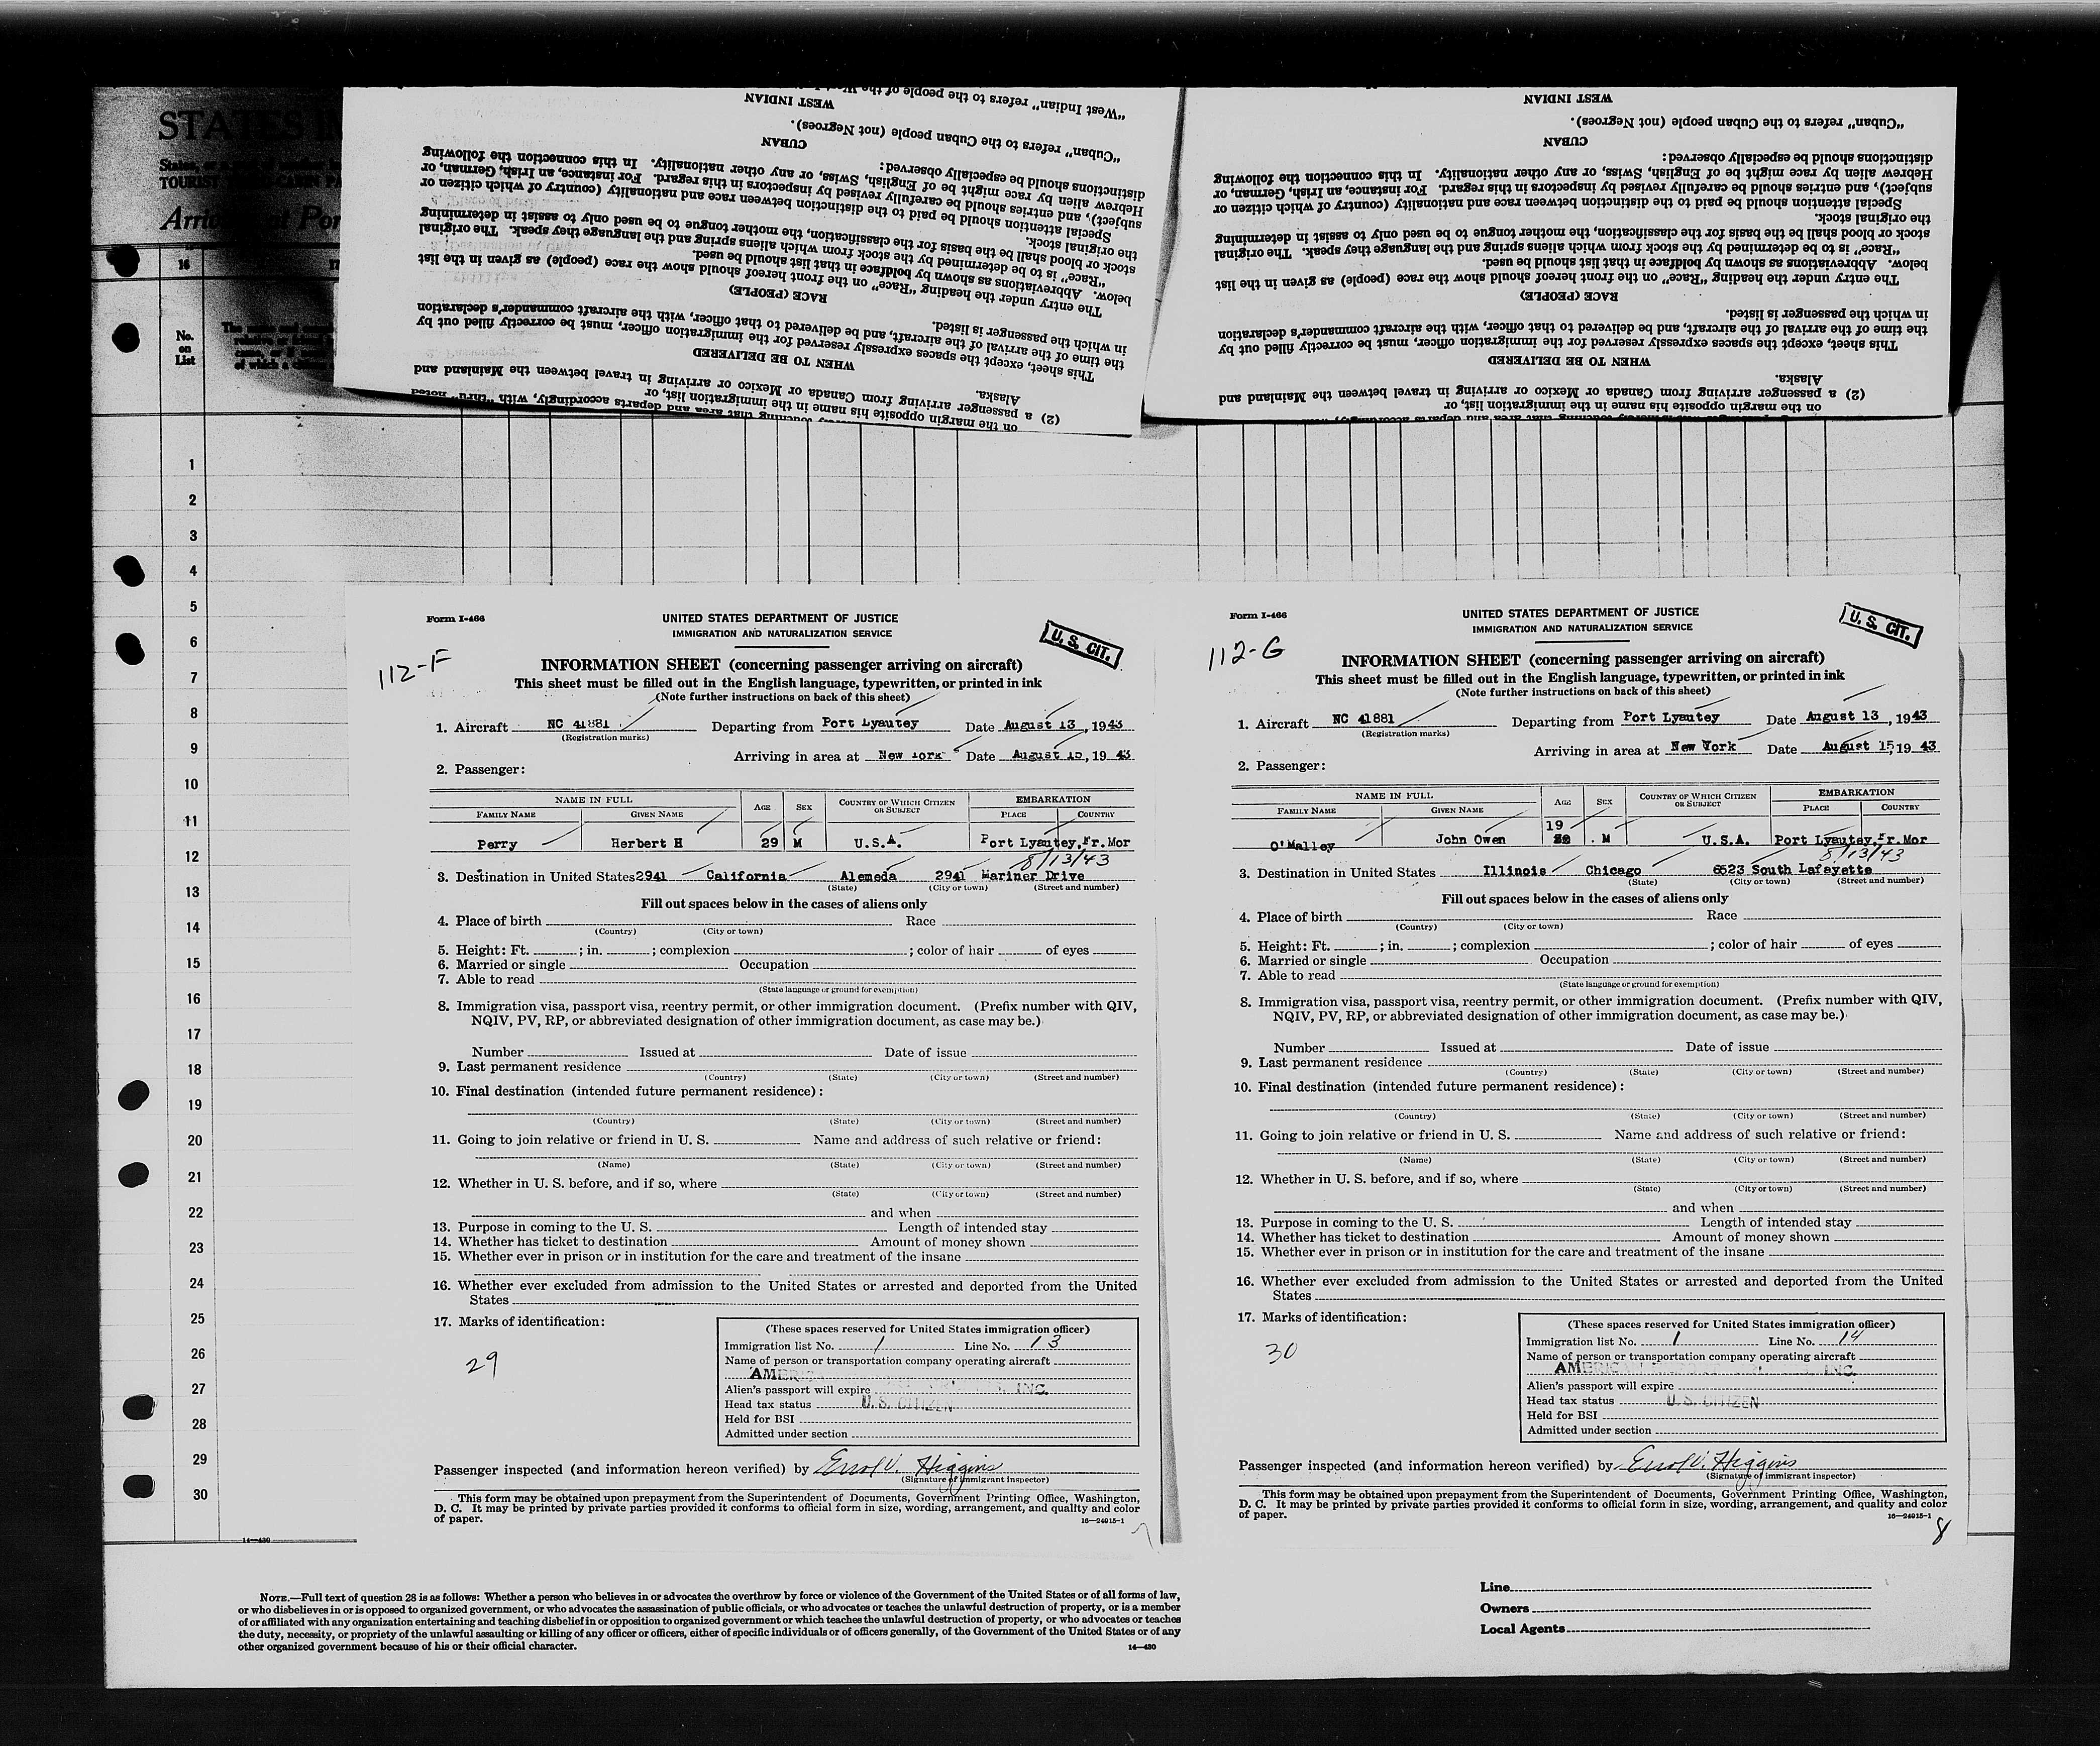 STATES
TOURIST
16
No.
on
List
"West Indian" refers to the people of the West
WEST INDIAN
"Cuban" refers to the Cuban people (not Negroes).
CUBAN
distinctions should be especially observed:
Hebrew alien by race might be of English, Swiss, or any other nationality. In this connection the following
subject), and entries should be carefully revised by inspectors in this regard. For instance, an Irish, German, or
Special attention should be paid to the distinction between race and nationality (country of which citizen or
the original stock.
stock or blood shall be the basis for the classification, the mother tongue to be used only to assist in determining
"Race" is to be determined by the stock from which aliens spring and the language they speak. The original
below. Abbreviations as shown by boldface in that list should be used.
The entry under the heading "Race" on the front hereof should show the race (people) as given in the list
RACE (PEOPLE)
in which the passenger is listed.
the time of the arrival of the aircraft, and be delivered to that officer, with the aircraft commander's declaration
This sheet, except the spaces expressly reserved for the immigration officer, must be correctly filled out by
WHEN TO BE DELIVERED
Alaska.
(2) a passenger arriving from Canada or Mexico or arriving in travel between the Mainland and
on the margin opposite his name in the immigration list, or
touching that area and departs accordingly, with "thru" noted
WEST INDIAN
"Cuban" refers to the Cuban people (not Negroes).
CUBAN
distinctions should be especially observed:
Hebrew alien by race might be of English, Swiss, or any other nationality. In this connection the following
subject), and entries should be carefully revised by inspectors in this regard. For instance, an Irish, German, or
Special attention should be paid to the distinction between race and nationality (country of which citizen or
the original stock.
stock or blood shall be the basis for the classification, the mother tongue to be used only to assist in determining
"Race" is to be determined by the stock from which aliens spring and the language they speak. The original
below. Abbreviations as shown by boldface in that list should be used.
The entry under the heading "Race" on the front hereof should show the race (people) as given in the list
RACE (PEOPLE)
in which the passenger is listed.
the time of the arrival of the aircraft, and be delivered to that officer, with the aircraft commander's declaration
This sheet, except the spaces expressly reserved for the immigration officer, must be correctly filled out by
WHEN TO BE DELIVERED
Alaska.
(2) a passenger arriving from Canada or Mexico or arriving in travel between the Mainland and
on the margin opposite his name in the immigration list, or
1
2
3
4
5
6
7
8
9
10
11
12
13
14
15
16
17
18
19
20
21
22
23
24
25
26
27
28
29
30
14—430
Form I-466
UNITED STATES DEPARTMENT OF JUSTICE
IMMIGRATION AND NATURALIZATION SERVICE
U. S. CIT.
112-F
INFORMATION SHEET (concerning passenger arriving on aircraft)
This sheet must be filled out in the English language, typewritten, or printed in ink
(Note further instructions on back of this sheet)
1. Aircraft NC 41881 Departing from Port Lyautey Date August 13, 1943
(Registration marks)
Arriving in area at New York Date August 15, 1943
2. Passenger:
NAME IN FULL AGE SEX COUNTRY OF WHICH CITIZEN OR SUBJECT EMBARKATION
FAMILY NAME GIVEN NAME PLACE COUNTRY
Perry Herbert H 29 M U.S.A. Port Lyautey, Fr. Mor
8/13/43
3. Destination in United States 2941 California Alameda 2941 Mariner Drive
(State) (City or town) (Street and number)
Fill out spaces below in the cases of aliens only
4. Place of birth Race
(Country) (City or town)
5. Height: Ft. ; in. ; complexion ; color of hair of eyes
6. Married or single Occupation
7. Able to read
(State language or ground for exemption)
8. Immigration visa, passport visa, reentry permit, or other immigration document. (Prefix number with QIV,
NQIV, PV, RP, or abbreviated designation of other immigration document, as case may be.)
Number Issued at Date of issue
9. Last permanent residence
(Country) (State) (City or town) (Street and number)
10. Final destination (intended future permanent residence):
(Country) (State) (City or town) (Street and number)
11. Going to join relative or friend in U. S. Name and address of such relative or friend:
(Name) (State) (City or town) (Street and number)
12. Whether in U. S. before, and if so, where
(State) (City or town) (Street and number)
and when
13. Purpose in coming to the U. S. Length of intended stay
14. Whether has ticket to destination Amount of money shown
15. Whether ever in prison or in institution for the care and treatment of the insane
16. Whether ever excluded from admission to the United States or arrested and deported from the United
States
17. Marks of identification:
29
(These spaces reserved for United States immigration officer)
Immigration list No. 1 Line No. 13
Name of person or transportation company operating aircraft
AMERICAN INC.
Alien's passport will expire
Head tax status U. S. CITIZEN
Held for BSI
Admitted under section
Passenger inspected (and information hereon verified) by Errol V. Higgins
(Signature of immigrant inspector)
This form may be obtained upon prepayment from the Superintendent of Documents, Government Printing Office, Washington,
D. C. It may be printed by private parties provided it conforms to official form in size, wording, arrangement, and quality and color
of paper.
16—24915-1
Form I-466
UNITED STATES DEPARTMENT OF JUSTICE
IMMIGRATION AND NATURALIZATION SERVICE
U. S. CIT.
112-G
INFORMATION SHEET (concerning passenger arriving on aircraft)
This sheet must be filled out in the English language, typewritten, or printed in ink
(Note further instructions on back of this sheet)
1. Aircraft NC 41881 Departing from Port Lyautey Date August 13, 1943
(Registration marks)
Arriving in area at New York Date August 15, 1943
2. Passenger:
NAME IN FULL AGE SEX COUNTRY OF WHICH CITIZEN OR SUBJECT EMBARKATION
FAMILY NAME GIVEN NAME PLACE COUNTRY
19
O'Malley John Owen M U.S.A. Port Lyautey, Fr. Mor
8/13/43
3. Destination in United States Illinois Chicago 6523 South Lafayette
(State) (City or town) (Street and number)
Fill out spaces below in the cases of aliens only
4. Place of birth Race
(Country) (City or town)
5. Height: Ft. ; in. ; complexion ; color of hair of eyes
6. Married or single Occupation
7. Able to read
(State language or ground for exemption)
8. Immigration visa, passport visa, reentry permit, or other immigration document. (Prefix number with QIV,
NQIV, PV, RP, or abbreviated designation of other immigration document, as case may be.)
Number Issued at Date of issue
9. Last permanent residence
(Country) (State) (City or town) (Street and number)
10. Final destination (intended future permanent residence):
(Country) (State) (City or town) (Street and number)
11. Going to join relative or friend in U. S. Name and address of such relative or friend:
(Name) (State) (City or town) (Street and number)
12. Whether in U. S. before, and if so, where
(State) (City or town) (Street and number)
and when
13. Purpose in coming to the U. S. Length of intended stay
14. Whether has ticket to destination Amount of money shown
15. Whether ever in prison or in institution for the care and treatment of the insane
16. Whether ever excluded from admission to the United States or arrested and deported from the United
States
17. Marks of identification:
30
(These spaces reserved for United States immigration officer)
Immigration list No. 1 Line No. 14
Name of person or transportation company operating aircraft
AMERICAN INC.
Alien's passport will expire
Head tax status U. S. CITIZEN
Held for BSI
Admitted under section
Passenger inspected (and information hereon verified) by Errol V. Higgins
(Signature of immigrant inspector)
This form may be obtained upon prepayment from the Superintendent of Documents, Government Printing Office, Washington,
D. C. It may be printed by private parties provided it conforms to official form in size, wording, arrangement, and quality and color
of paper.
16—24915-1
8
NOTE.—Full text of question 28 is as follows: Whether a person who believes in or advocates the overthrow by force or violence of the Government of the United States or of all forms of law,
or who disbelieves in or is opposed to organized government, or who advocates the assassination of public officials, or who advocates or teaches the unlawful destruction of property, or is a member
of or affiliated with any organization entertaining and teaching disbelief in or opposition to organized government or which teaches the unlawful destruction of property, or who advocates or teaches
the duty, necessity, or propriety of the unlawful assaulting or killing of any officer or officers, either of specific individuals or of officers generally, of the Government of the United States or of any
other organized government because of his or their official character.
14—430
Line
Owners
Local Agents